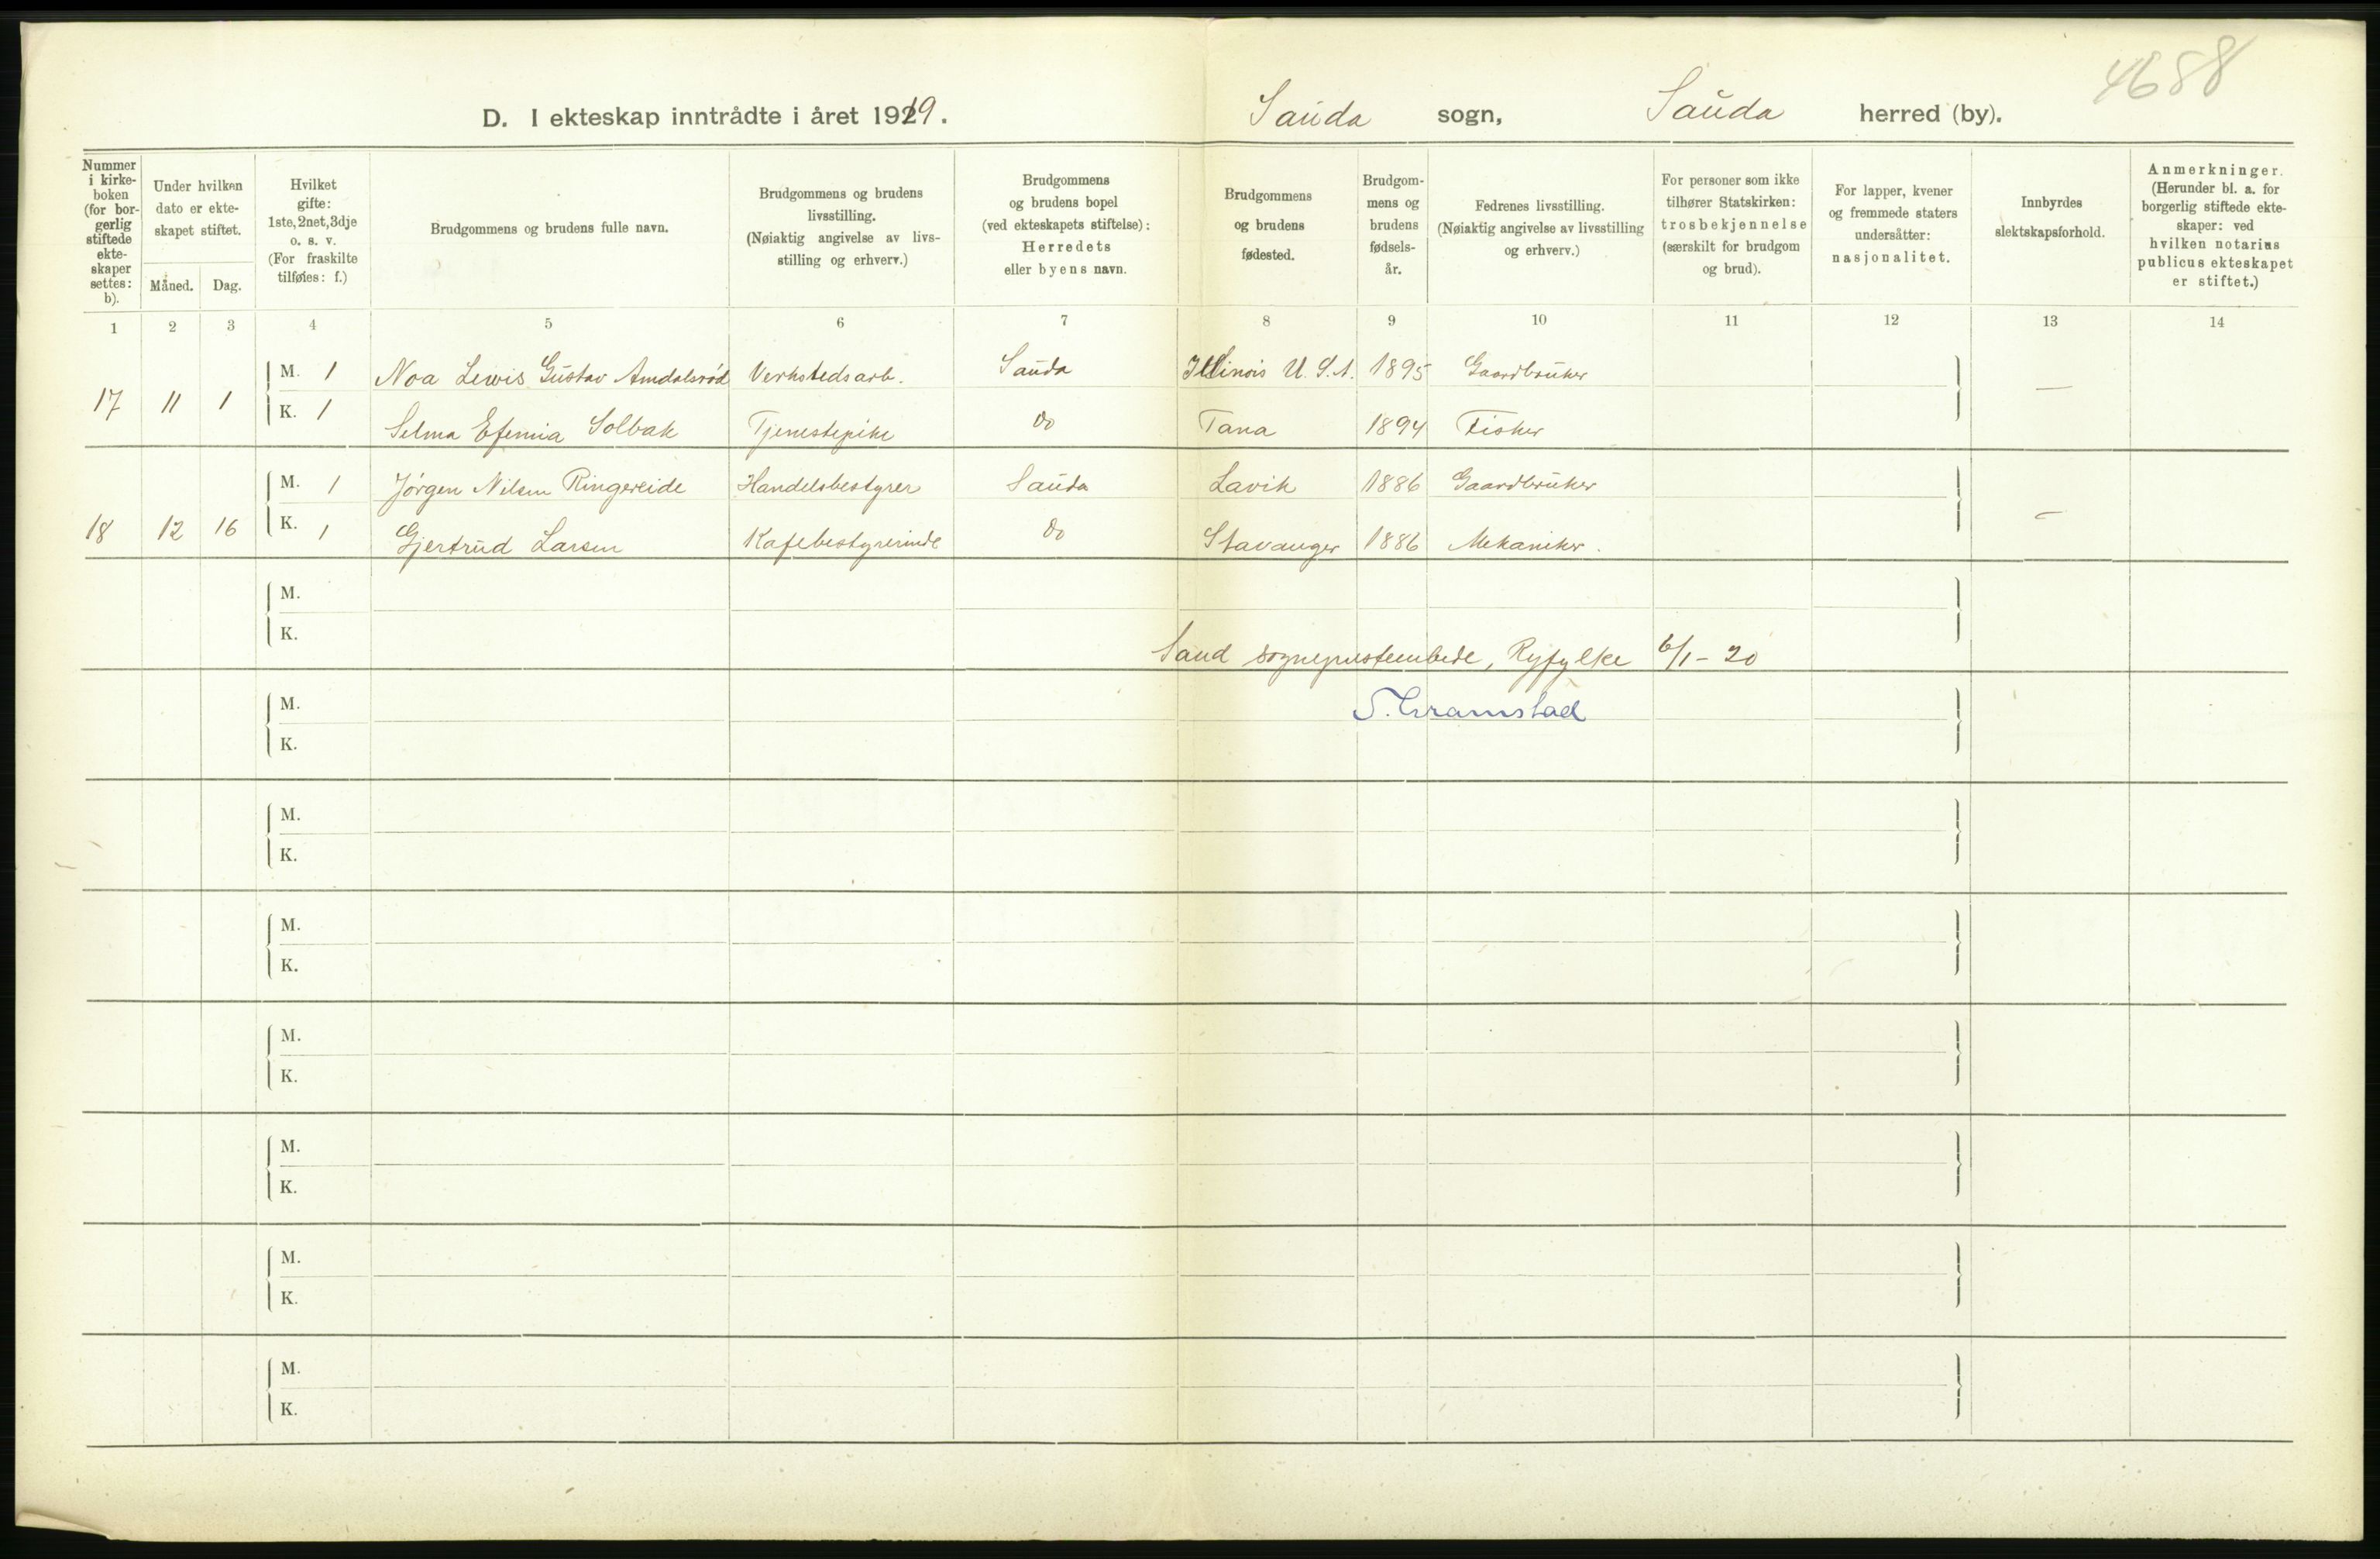 4688
D. I ekteskap inntrådte i året 1919. Sauda sogn, Sauda herred (by).
Nummer i kirke- boken (for bor- gerlig stiftede ekte- skaper settes: b).
Under hvilken dato er ekte- skapet stiftet.
Måned. Dag.
Hvilket gifte: 1ste, 2net, 3dje o. s. v. (For fraskilte tilføies: f.)
Brudgommens og brudens fulle navn.
Brudgommens og brudens livsstilling. (Nøiaktig angivelse av livs- stilling og erhverv.)
Brudgommens og brudens bopel (ved ekteskapets stiftelse): Herredets eller byens navn.
Brudgommens og brudens fødested.
Brudgom- mens og brudens fødsels- år.
Fedrenes livsstilling. (Nøiaktig angivelse av livsstilling og erhverv.)
For personer som ikke tilhører Statskirken: trosbekjennelse (særskilt for brudgom og brud).
For lapper, kvener og fremmede staters undersåtter: nasjonalitet.
Innbyrdes slektskapsforhold.
Anmerkninger. (Herunder bl. a. for borgerlig stiftede ekte- skaper: ved hvilken notarius publicus ekteskapet er stiftet.)
1 2 3 4 5 6 7 8 9 10 11 12 13 14
17 11 1 M. 1 Noa Lewis Gustav Amdalsrød Verkstedsarb. Sauda Illinois U.S.A. 1895 Gaardbruker —
K. 1 Selma Efemia Solbak Tjenestepike do Tana 1894 Fisker
18 12 16 M. 1 Jørgen Nilsen Ringereide Handelsbestyrer Sauda Lavik 1886 Gaardbruker —
K. 1 Gjertrud Larsen Kafebestyrerinde do Stavanger 1886 Mekaniker.
M.
K.
Sand sogneprestembede, Ryfylke 6/1-20
M.
S. Tramstad
K.
M.
K.
M.
K.
M.
K.
M.
K.
M.
K.
M.
K.